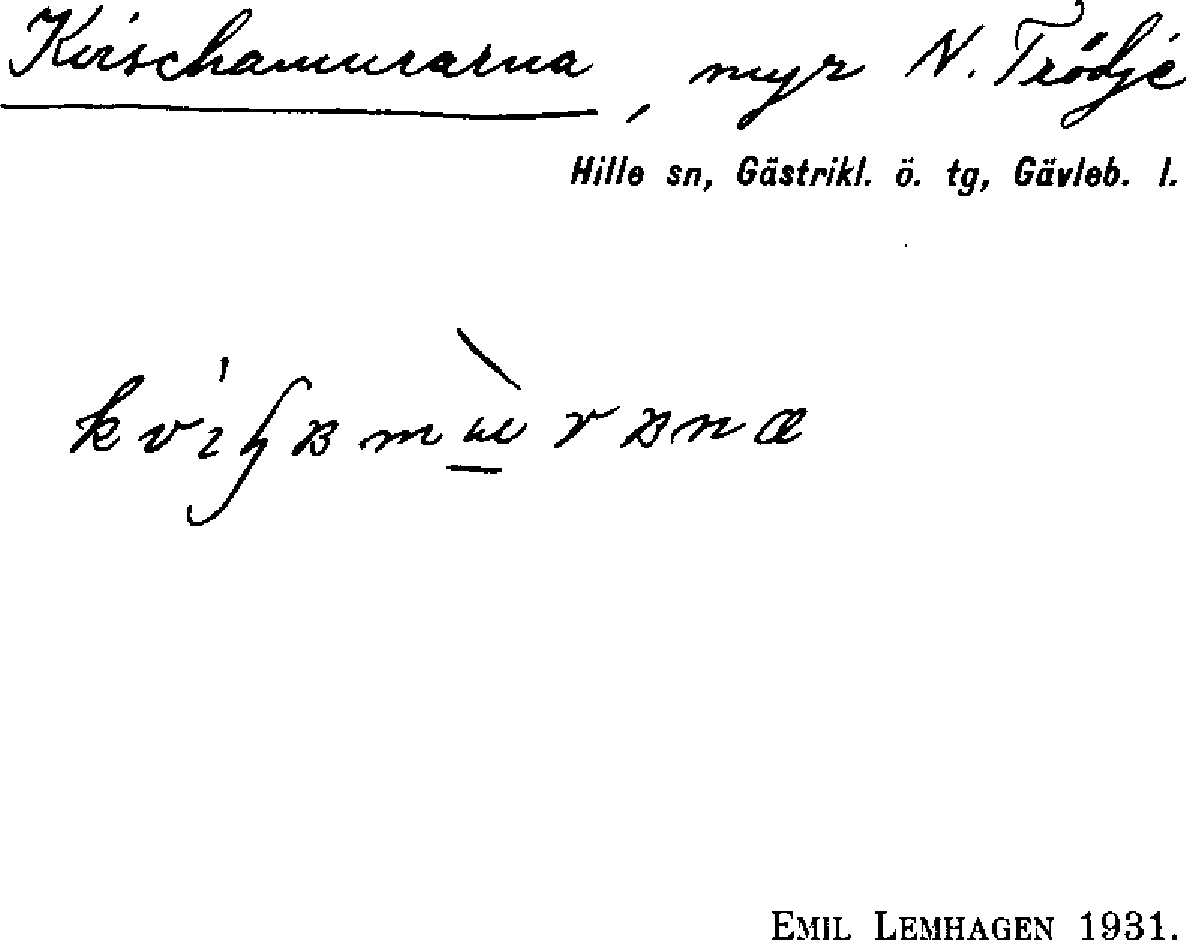 Kvischamurarna, myr N. Trödje
Hille sn, Gästrikl. ö. tg, Gävleb. l.
EMIL LEMHAGEN 1931.